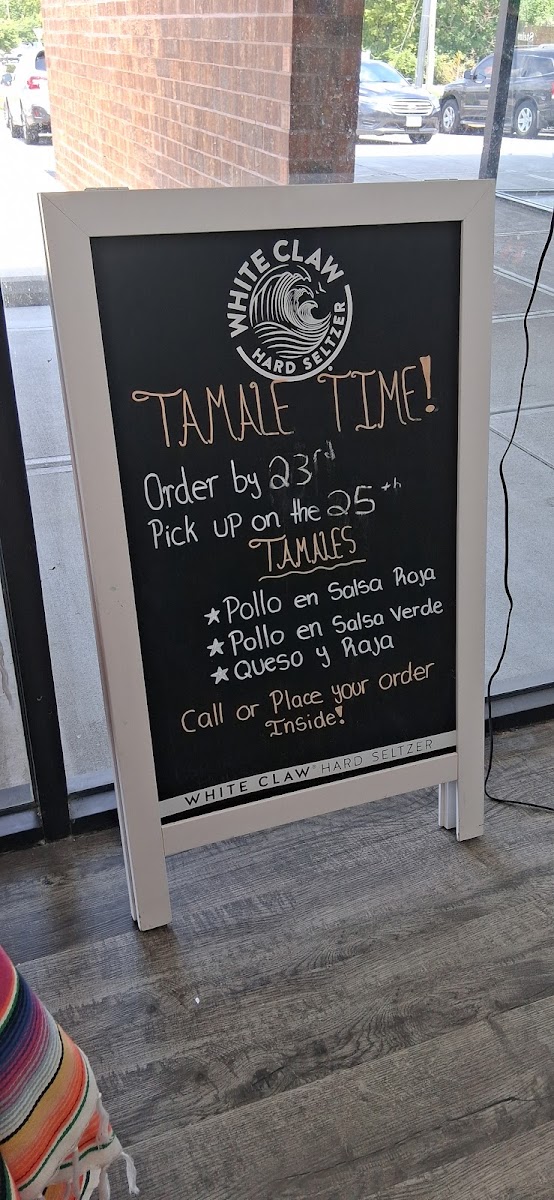 WHITE CLAW
HARD SELTZER
TAMALE TIME!
Order by 23rd
Pick up on the 25th
TAMALES
★Pollo en Salsa Roja
★Pollo en Salsa Verde
★Queso y Raja
Call or Place your order
Inside!
WHITE CLAW® HARD SELTZER